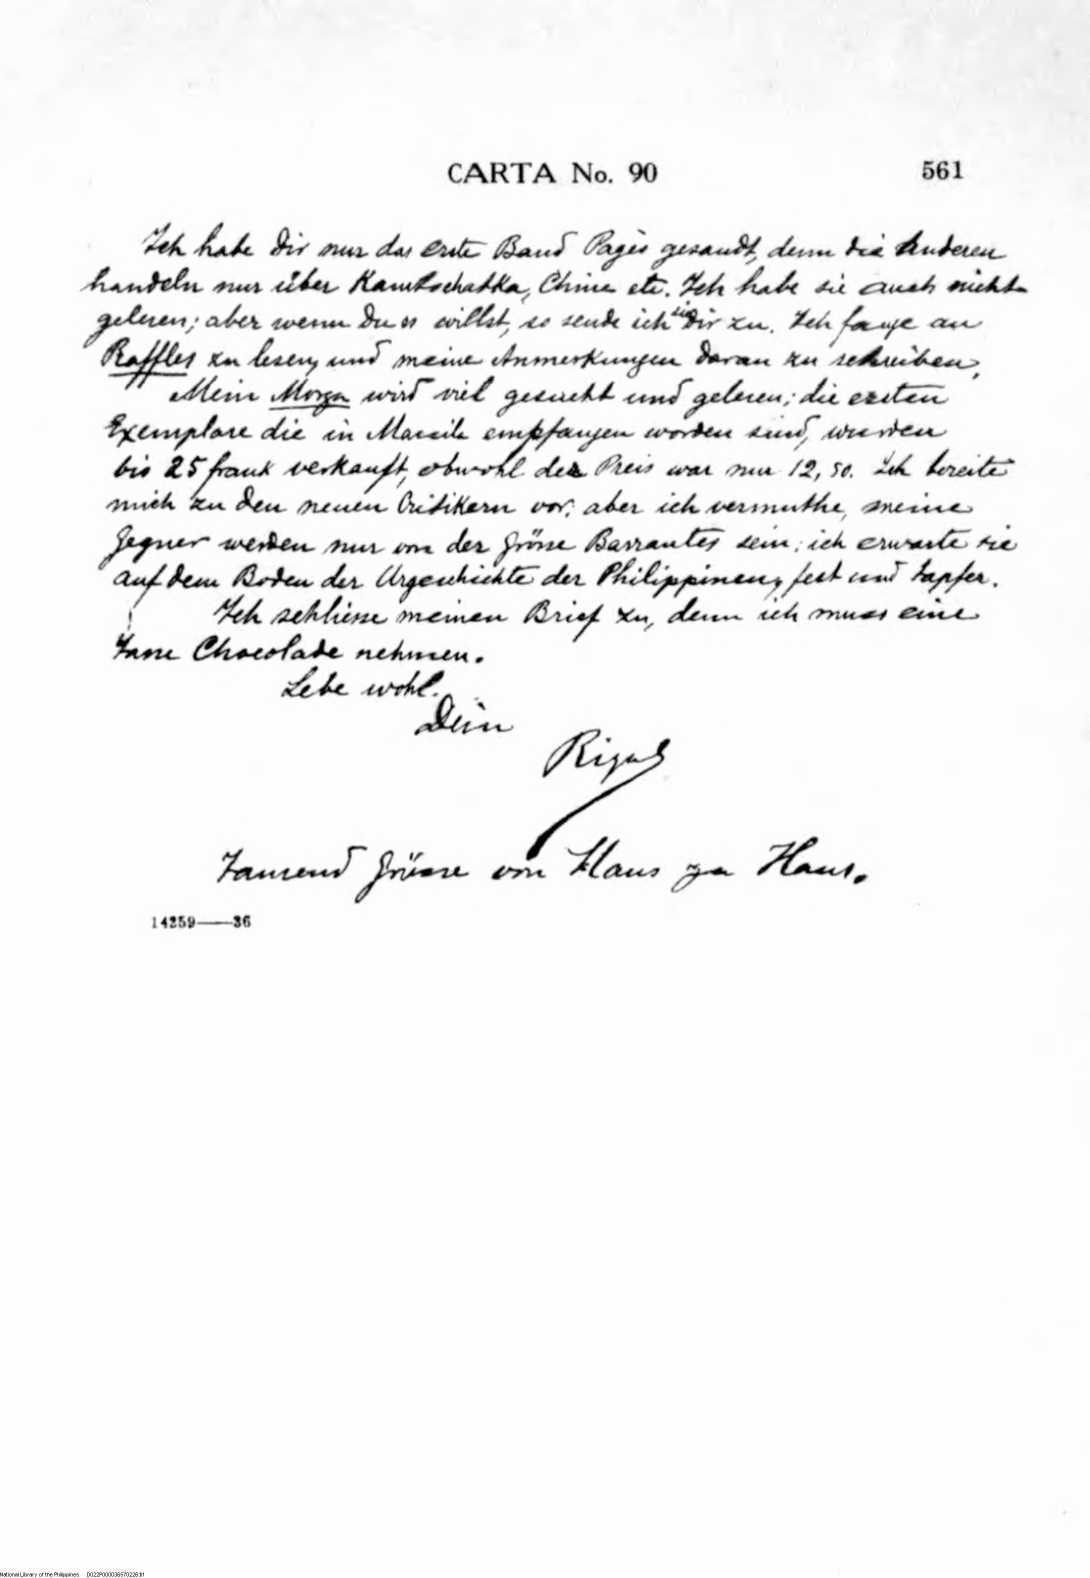 CARTA No. 90 561
Ich habe Dir nur das erste Band Pagès gesandt, denn die Anderen
handeln nur über Kamtschatka, China etc. Ich habe sie auch nicht
gelesen; aber wenn Du es willst, so sende ich sie Dir zu. Ich fange an
Raffles zu lesen, und meine Anmerkungen daran zu schreiben.
Mein Morga wird viel gesucht und gelesen; die ersten
Exemplare die in Manila empfangen worden sind, wurden
bis 25 frank verkauft, obwohl der Preis war nur 12,50. Ich bereite
mich zu den neuen Critikern vor; aber ich vermuthe, meine
Gegner werden nur von der Grösse Barrantes sein; ich erwarte sie
auf dem Boden der Urgeschichte der Philippinen, fest und tapfer.
Ich schliesse meinen Brief zu, denn ich muss eine
Tasse Chocolade nehmen.
Lebe wohl.
Dein
Rizal
Tausend Grüsse von Haus zu Haus.
14259——36
National Library of the Philippines